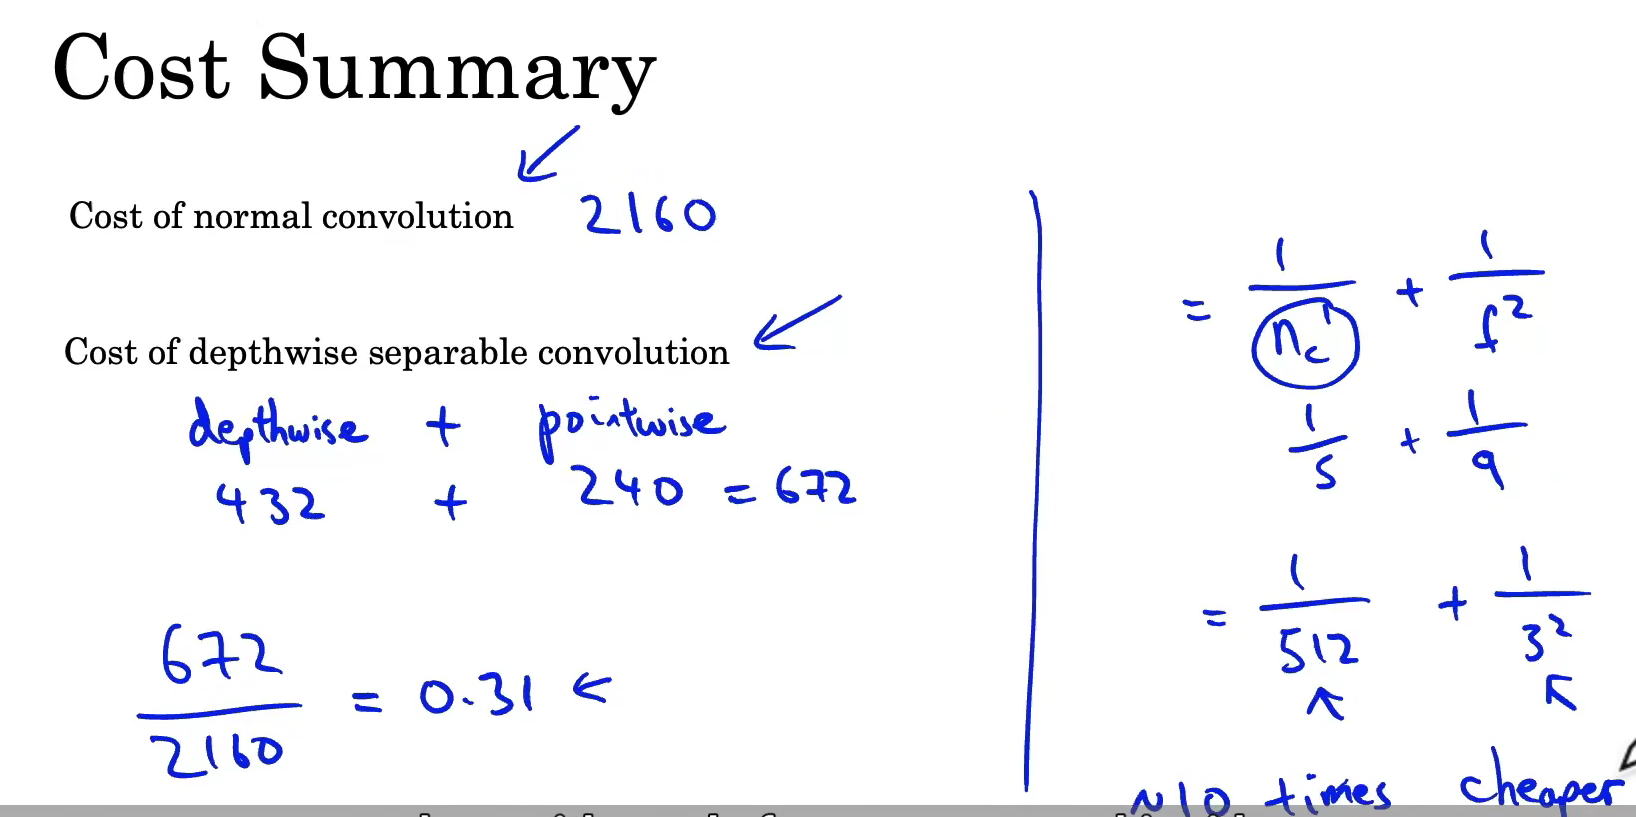 Cost Summary
Cost of normal convolution 2160
Cost of depthwise separable convolution
depthwise + pointwise
432 + 240 = 672
672
2160
= 0.31 ←
= 1/n_c' + 1/f²
1/5 + 1/9
= 1/512 + 1/3²
~10 times cheaper